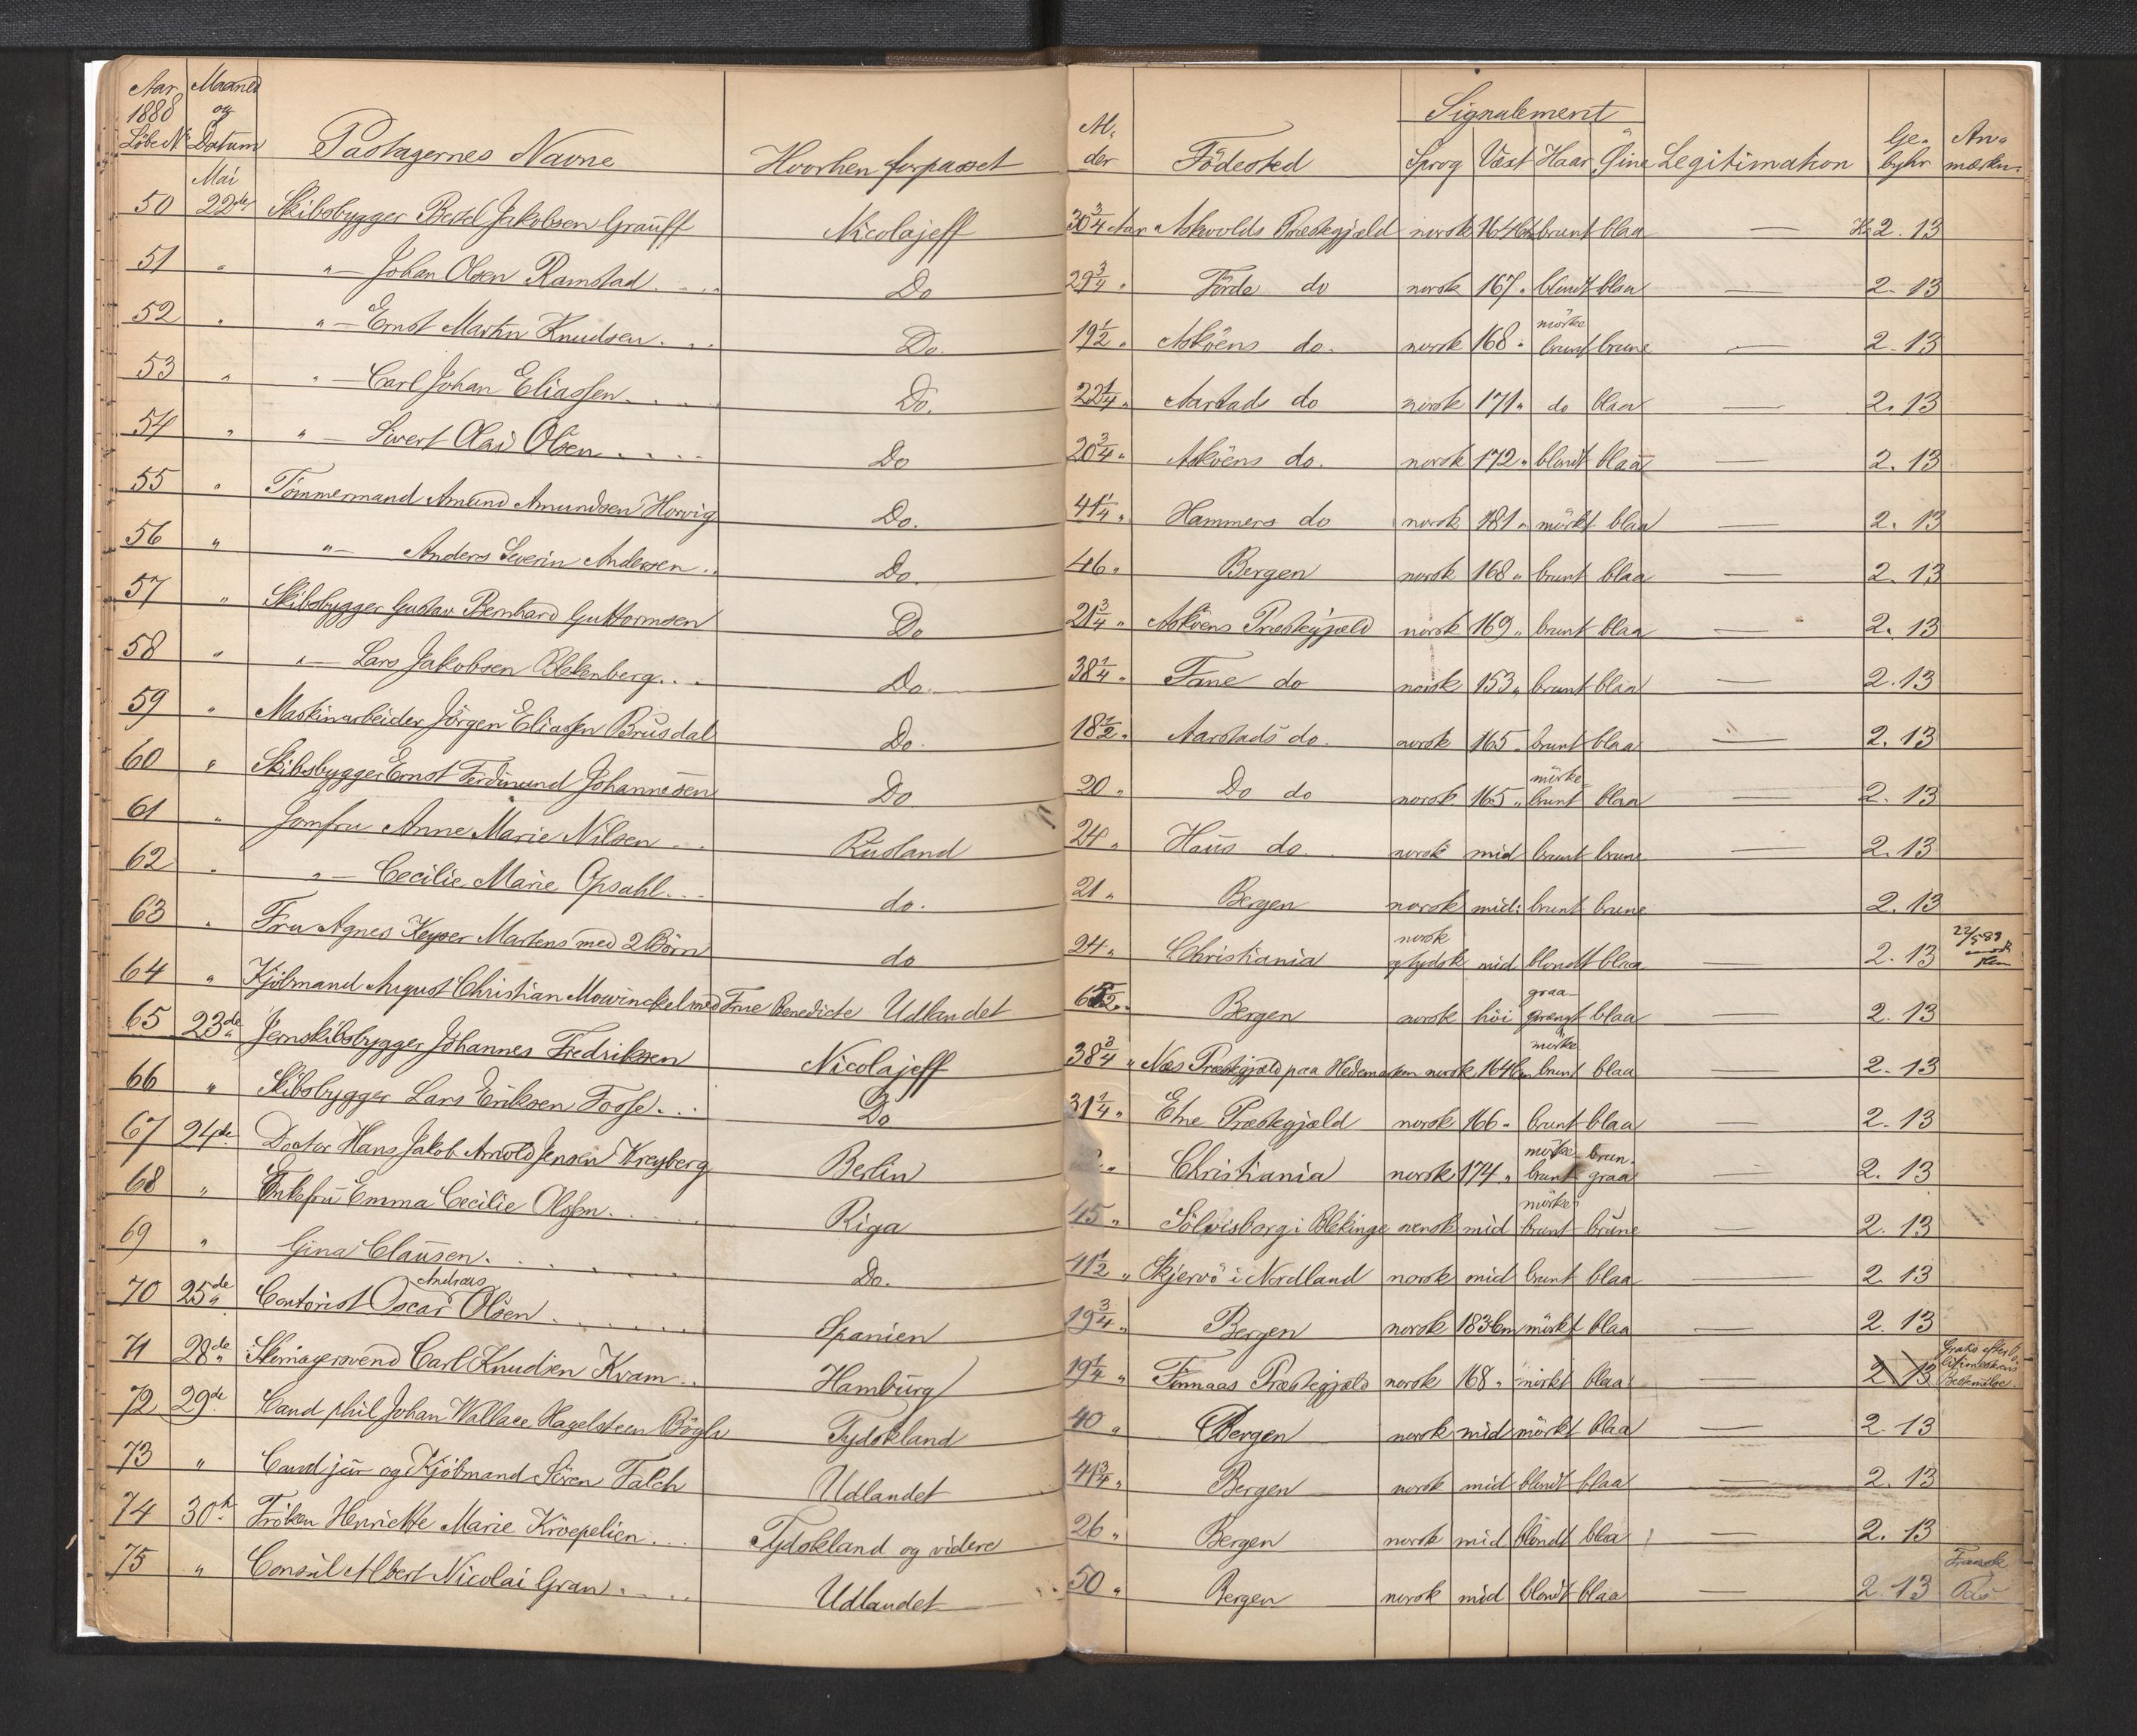 Aar 1888 Löbe No Maaned og Datum Pastagernes Navne Hvorhen forpasset Al- der Födested Signalement Sprog Væxt Haar Öine Legitimation Ge- byhr An- mærkn.
Mai
50 22de Skibsbygger Jakobsen Nicolajeff 30 3/4 Aar Askvolds Præstegjæld norsk 164 Cm brunt blaa — Kr 2.13
51 " "— Johan Olsen Ramstad Do 29 3/4 " Förde do norsk 167 " blondt blaa — 2.13
52 " "— Ernst Martin Knudsen Do. 19 1/2 " Asköens do. norsk 168 " mörke brunt brune — 2.13
53 " "— Carl Johan Eliassen Do. 22 1/4 " Aarstads do norsk 171 " do blaa — 2.13
54 " "— Sivert Olai Olsen Do 20 3/4 " Asköens do. norsk 172 " blondt blaa — 2.13
55 " Tömmermand Amund Amundsen Horvig Do. 41 1/4 " Hammers do norsk 181 " mörkt blaa — 2.13
56 " "— Anders Severin Andersen Do. 46 " Bergen norsk 168 " brunt blaa — 2.13
57 " Skibsbygger Gustav Bernhard Guttormsen Do 21 3/4 " Asköens Præstegjæld norsk 169 " brunt blaa — 2.13
58 " "— Lars Jakobsen Blekenberg Do. 38 1/4 " Fane do norsk 153 " brunt blaa — 2.13
59 " Maskinarbeider Jörgen Eliassen Brusdal Do. 18 1/2 " Aarstads do. norsk 165 " brunt blaa — 2.13
60 " Skibsbygger Ernst Ferdinand Johannesen Do. 20 " Do do norsk 165 " mörke brunt blaa — 2.13
61 " Jomfru Anne Marie Nilsen Rusland 24 " Haus do norsk mid brunt brune — 2.13
62 " "— Cecilie Marie Opsahl do. 21 " Bergen norsk mid: brunt brune 2.13
63 " Fru Agnes Keyser Martens med 2 Börn do 24 " Christiania norsk og tydsk mid blondt blaa 2.13 22/5 88
64 " Kjöbmand August Christian Mowinckel med Frue Benedicte Udlandet Bergen norsk höi graa- sprængt blaa — 2.13
65 23de Jernskibsbygger Johannes Fredriksen Nicolajeff 38 3/4 " Næs Præstegjæld paa Hedemarken norsk 164 Cm mörke brunt blaa — 2.13
66 " Skibsbygger Lars Eriksen Tosse Do 31 1/4 " Etne Præstegjæld norsk 166 " brunt blaa — 2.13
67 24de Doctor Hans Jakob Arnold Jensen Kreyberg Berlin Christiania norsk 174 " mörke brunt brun- graa — 2.13
68 " Enkefru Emma Cecilie Olssen Riga 45 " Sölvisborg i Blekinge svensk mid mörke brunt brune 2.13
69 " Gina Clausen Do. 41 1/2 " Skjervö i Nordland norsk mid brunt blaa — 2.13
70 25de Contorist Oscar Andreas Olsen Spanien 19 3/4 " Bergen norsk 183 Cm mörkt blaa — 2.13
71 28de Skomagersvend Carl Knudsen Kvam Hamburg 19 1/4 " Finnaas Præstegjæld norsk 168 " mörkt blaa — 2 13 Gratis efter
72 29de Cand phil Johan Wallace Hagelsteen Bögh Tydskland 40 " Bergen norsk mid mörkt blaa — 2.13
73 " Cand jur og Kjöbmand Sören Falch Udlandet 41 3/4 " Bergen norsk mid blondt blaa — 2.13
74 30te Fröken Henriette Marie Kroepelien Tydskland og videre 26 " Bergen norsk mid blondt blaa — 2.13
75 " Consul Albert Nicolai Gran Udlandet 50 " Bergen norsk mid blondt blaa — 2.13 Fransk